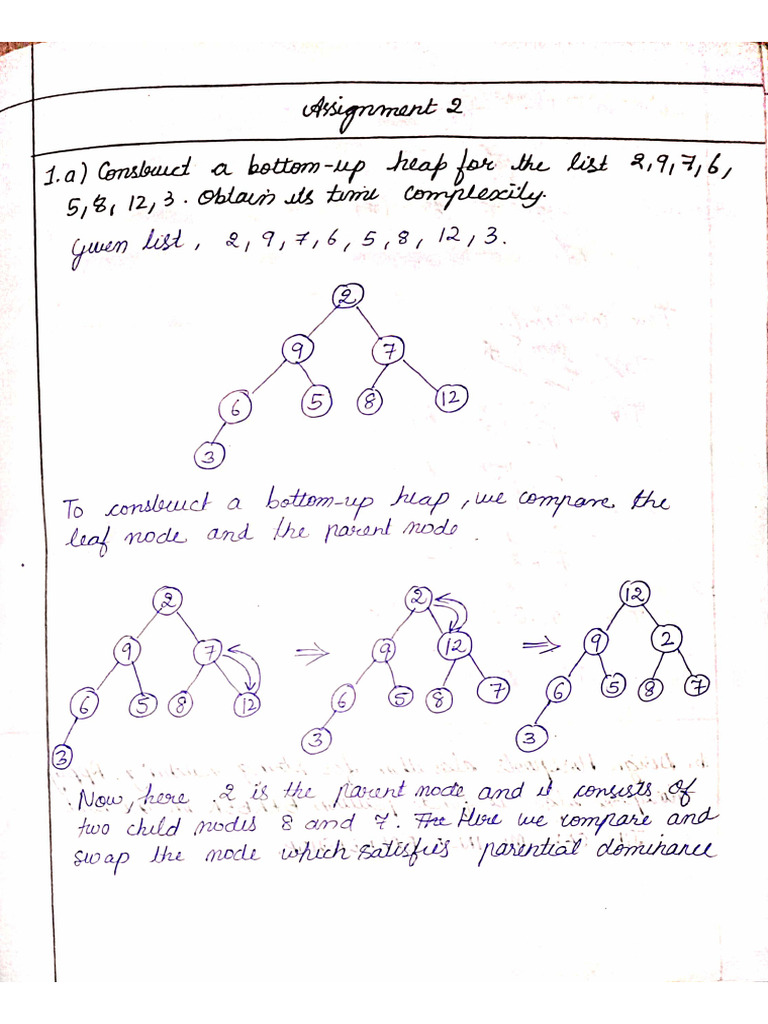 Assignment 2
1.a) Construct a bottom-up heap for the list 2,9,7,6,
5,8,12,3. Obtain its time complexity.
Given list, 2, 9, 7, 6, 5, 8, 12, 3.
2
9 7
6 5 8 12
3
To construct a bottom-up heap, we compare the
leaf node and the parent node.
2 2 12
9 7 ⇒ 9 12 ⇒ 9 2
6 5 8 12 6 5 8 7 6 5 8 7
3 3 3
Now, here 2 is the parent node and it consists of
two child nodes 8 and 7. The Here we compare and
swap the node which satisfies parential dominance